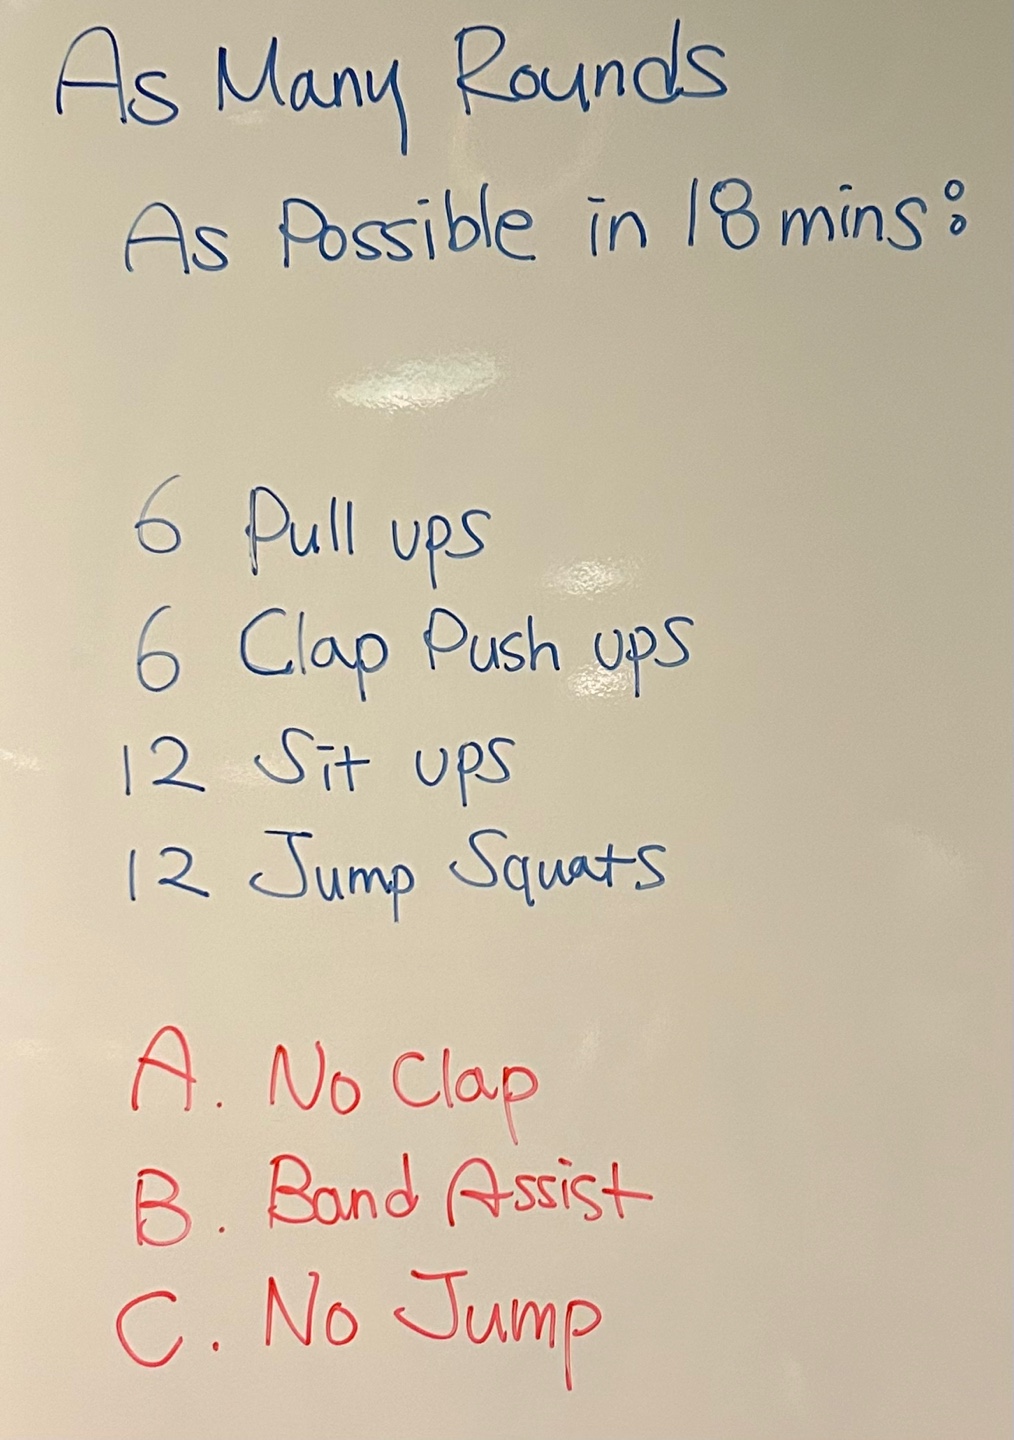 As Many Rounds
As Possible in 18 mins:
6 Pull ups
6 Clap Push ups
12 Sit ups
12 Jump Squats
A. No Clap
B. Band Assist
C. No Jump